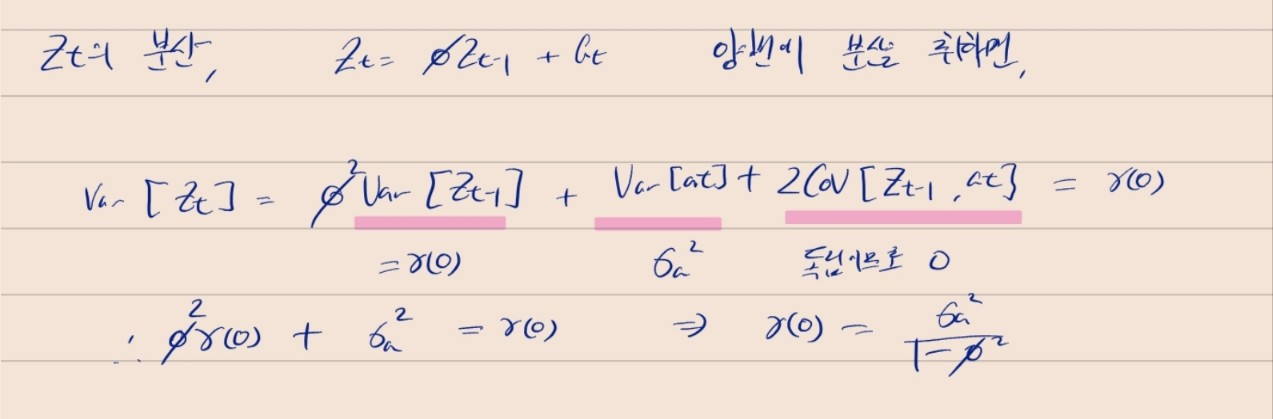 Zt의 분산, Zt = øZt-1 + at 양변에 분산을 취하면,
Var [Zt] = ø² Var [Zt-1] + Var [at] + 2 Cov [Zt-1, at] = γ(0)
= γ(0) σa² 독립이므로 0
∴ ø²γ(0) + σa² = γ(0) ⇒ γ(0) = σa² / 1-ø²